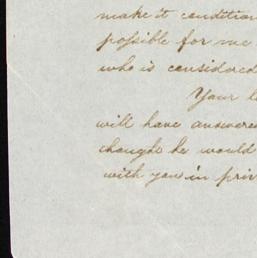 make it condition
possible for me
who is considered
Your l
will have answere
thought he would
with you in priv